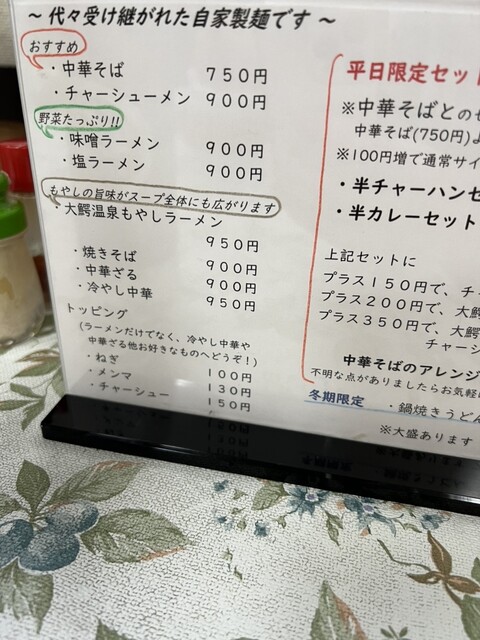 ～ 代々受け継がれた自家製麺です ～
おすすめ
・中華そば 750円
・チャーシューメン 900円
野菜たっぷり!!
・味噌ラーメン 900円
・塩ラーメン 900円
もやしの旨味がスープ全体にも広がります
・大鰐温泉もやしラーメン
950円
・焼きそば 900円
・中華ざる 900円
・冷やし中華 950円
トッピング
(ラーメンだけでなく、冷やし中華や
中華ざる他お好きなものへどうぞ！)
・ねぎ 100円
・メンマ 130円
・チャーシュー 150円
平日限定セッ
※中華そばとの
中華そば(750円)
※100円増で通常サイ
・半チャーハンセ
・半カレーセット
上記セットに
プラス150円で、チ
プラス200円で、大鰐
プラス350円で、大鰐
チャーシ
中華そばのアレンジ
不明な点がありましたらお気軽
冬期限定 ・鍋焼きうどん
※大盛あります